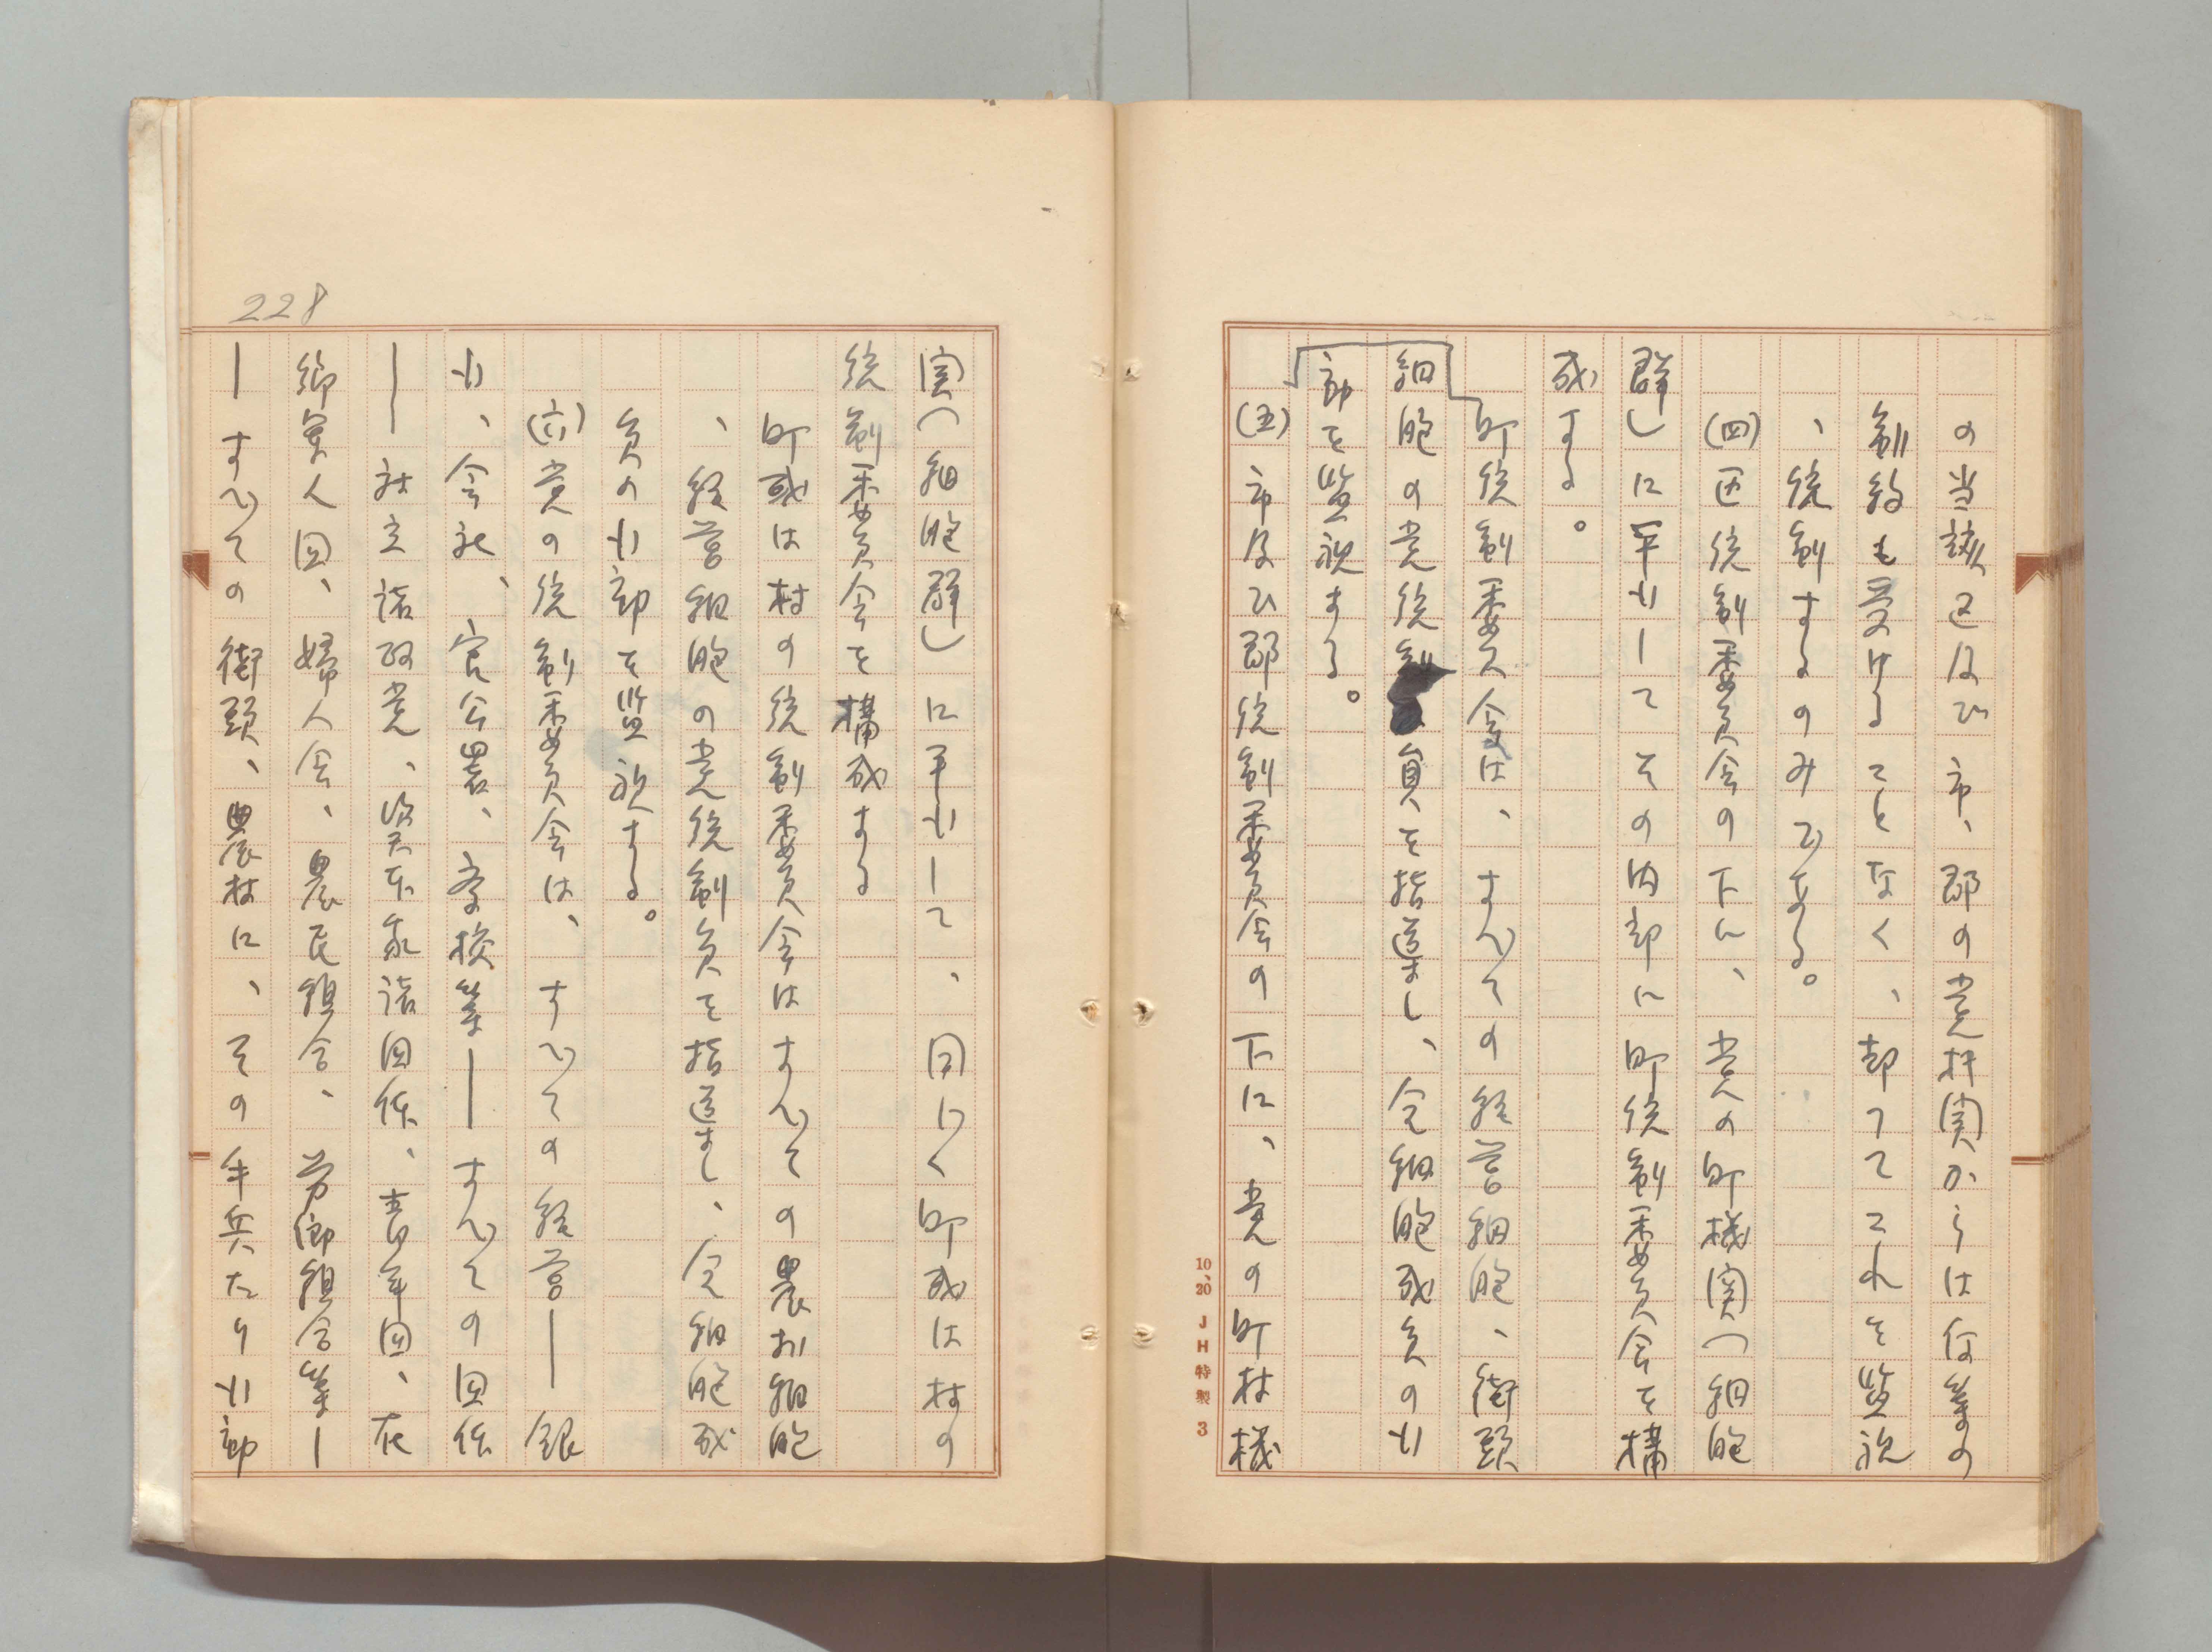 の当該区及び市、郡の党機関からは何等の
制約も受けることなく、却ってこれを監視
、統制するのみである。
(四)区統制委員会の下に、党の町機関(細胞
群)に平行してその内部に町統制委員会を構
成する。
町統制委員会は、すべての経営細胞、街頭
細胞の党統制員を指導し、全細胞成員の行
動を監視する。
(五)市及び郡統制委員会の下に、党の町村機
10、20 JH特製 3
228
関(細胞群)に平行して、同じく町或は村の
統制委員会を構成する
町或は村の統制委員会はすべての農村細胞
、経営細胞の党統制員を指導し、全細胞成
員の行動を監視する。
(六)党の統制委員会は、すべての経営―銀
行、会社、官公署、学校等―すべての団体
―社立諸政党、資本家諸団体、青年団、在
郷軍人団、婦人会、農民組合、労働組合等―
―すべての街頭、農村に、その手兵たり行動